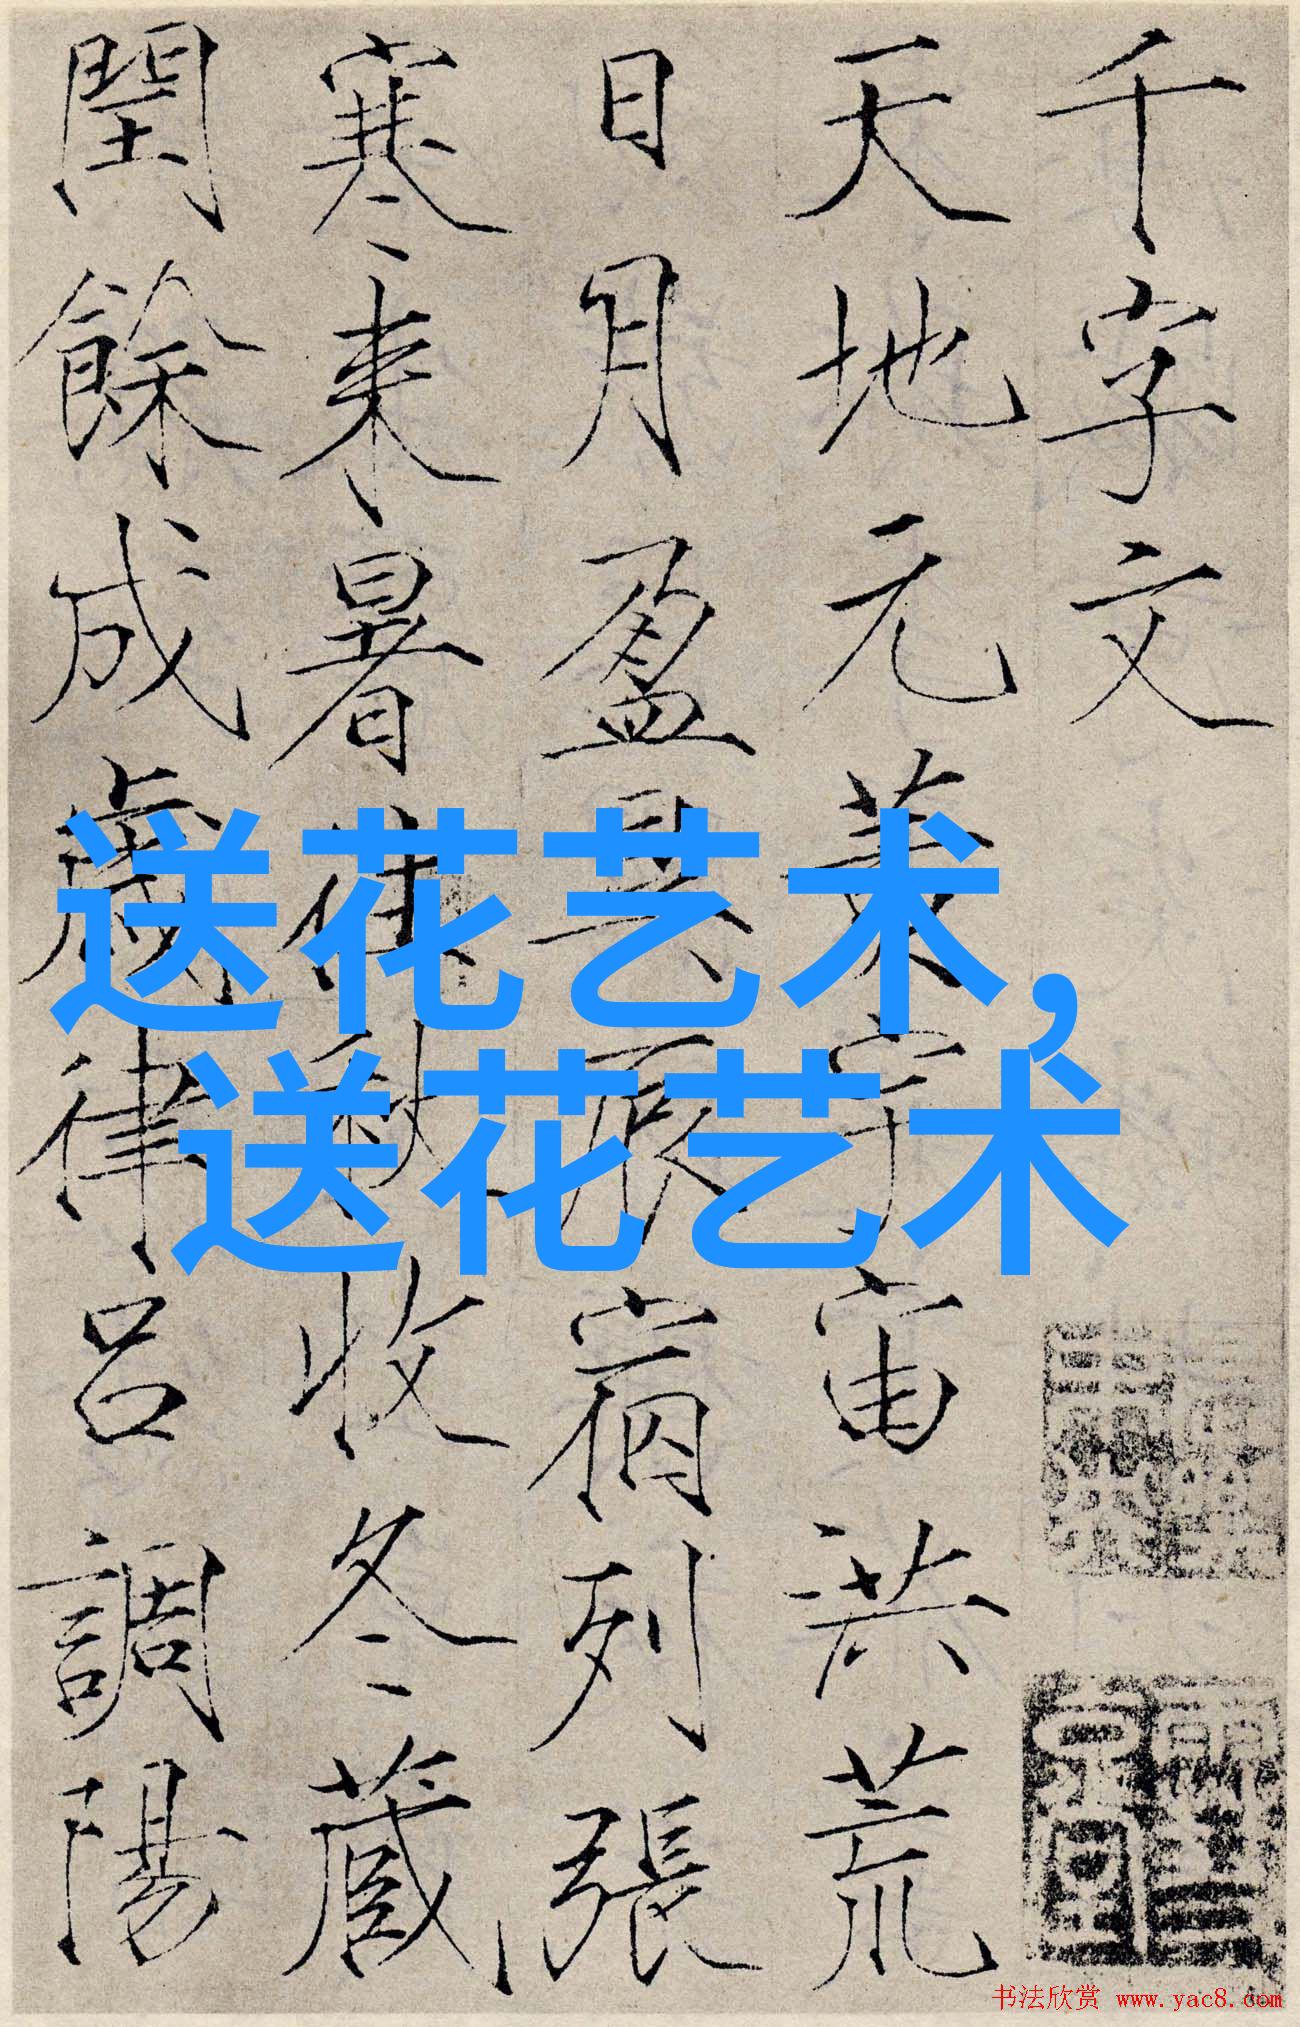 千字文
天地元黄宇宙洪荒
日月盈昃辰宿列張
寒来暑往秋收冬蔵
閏餘成歲律呂調陽
送花艺术,
送花艺术
书法欣赏 www.yac8.com